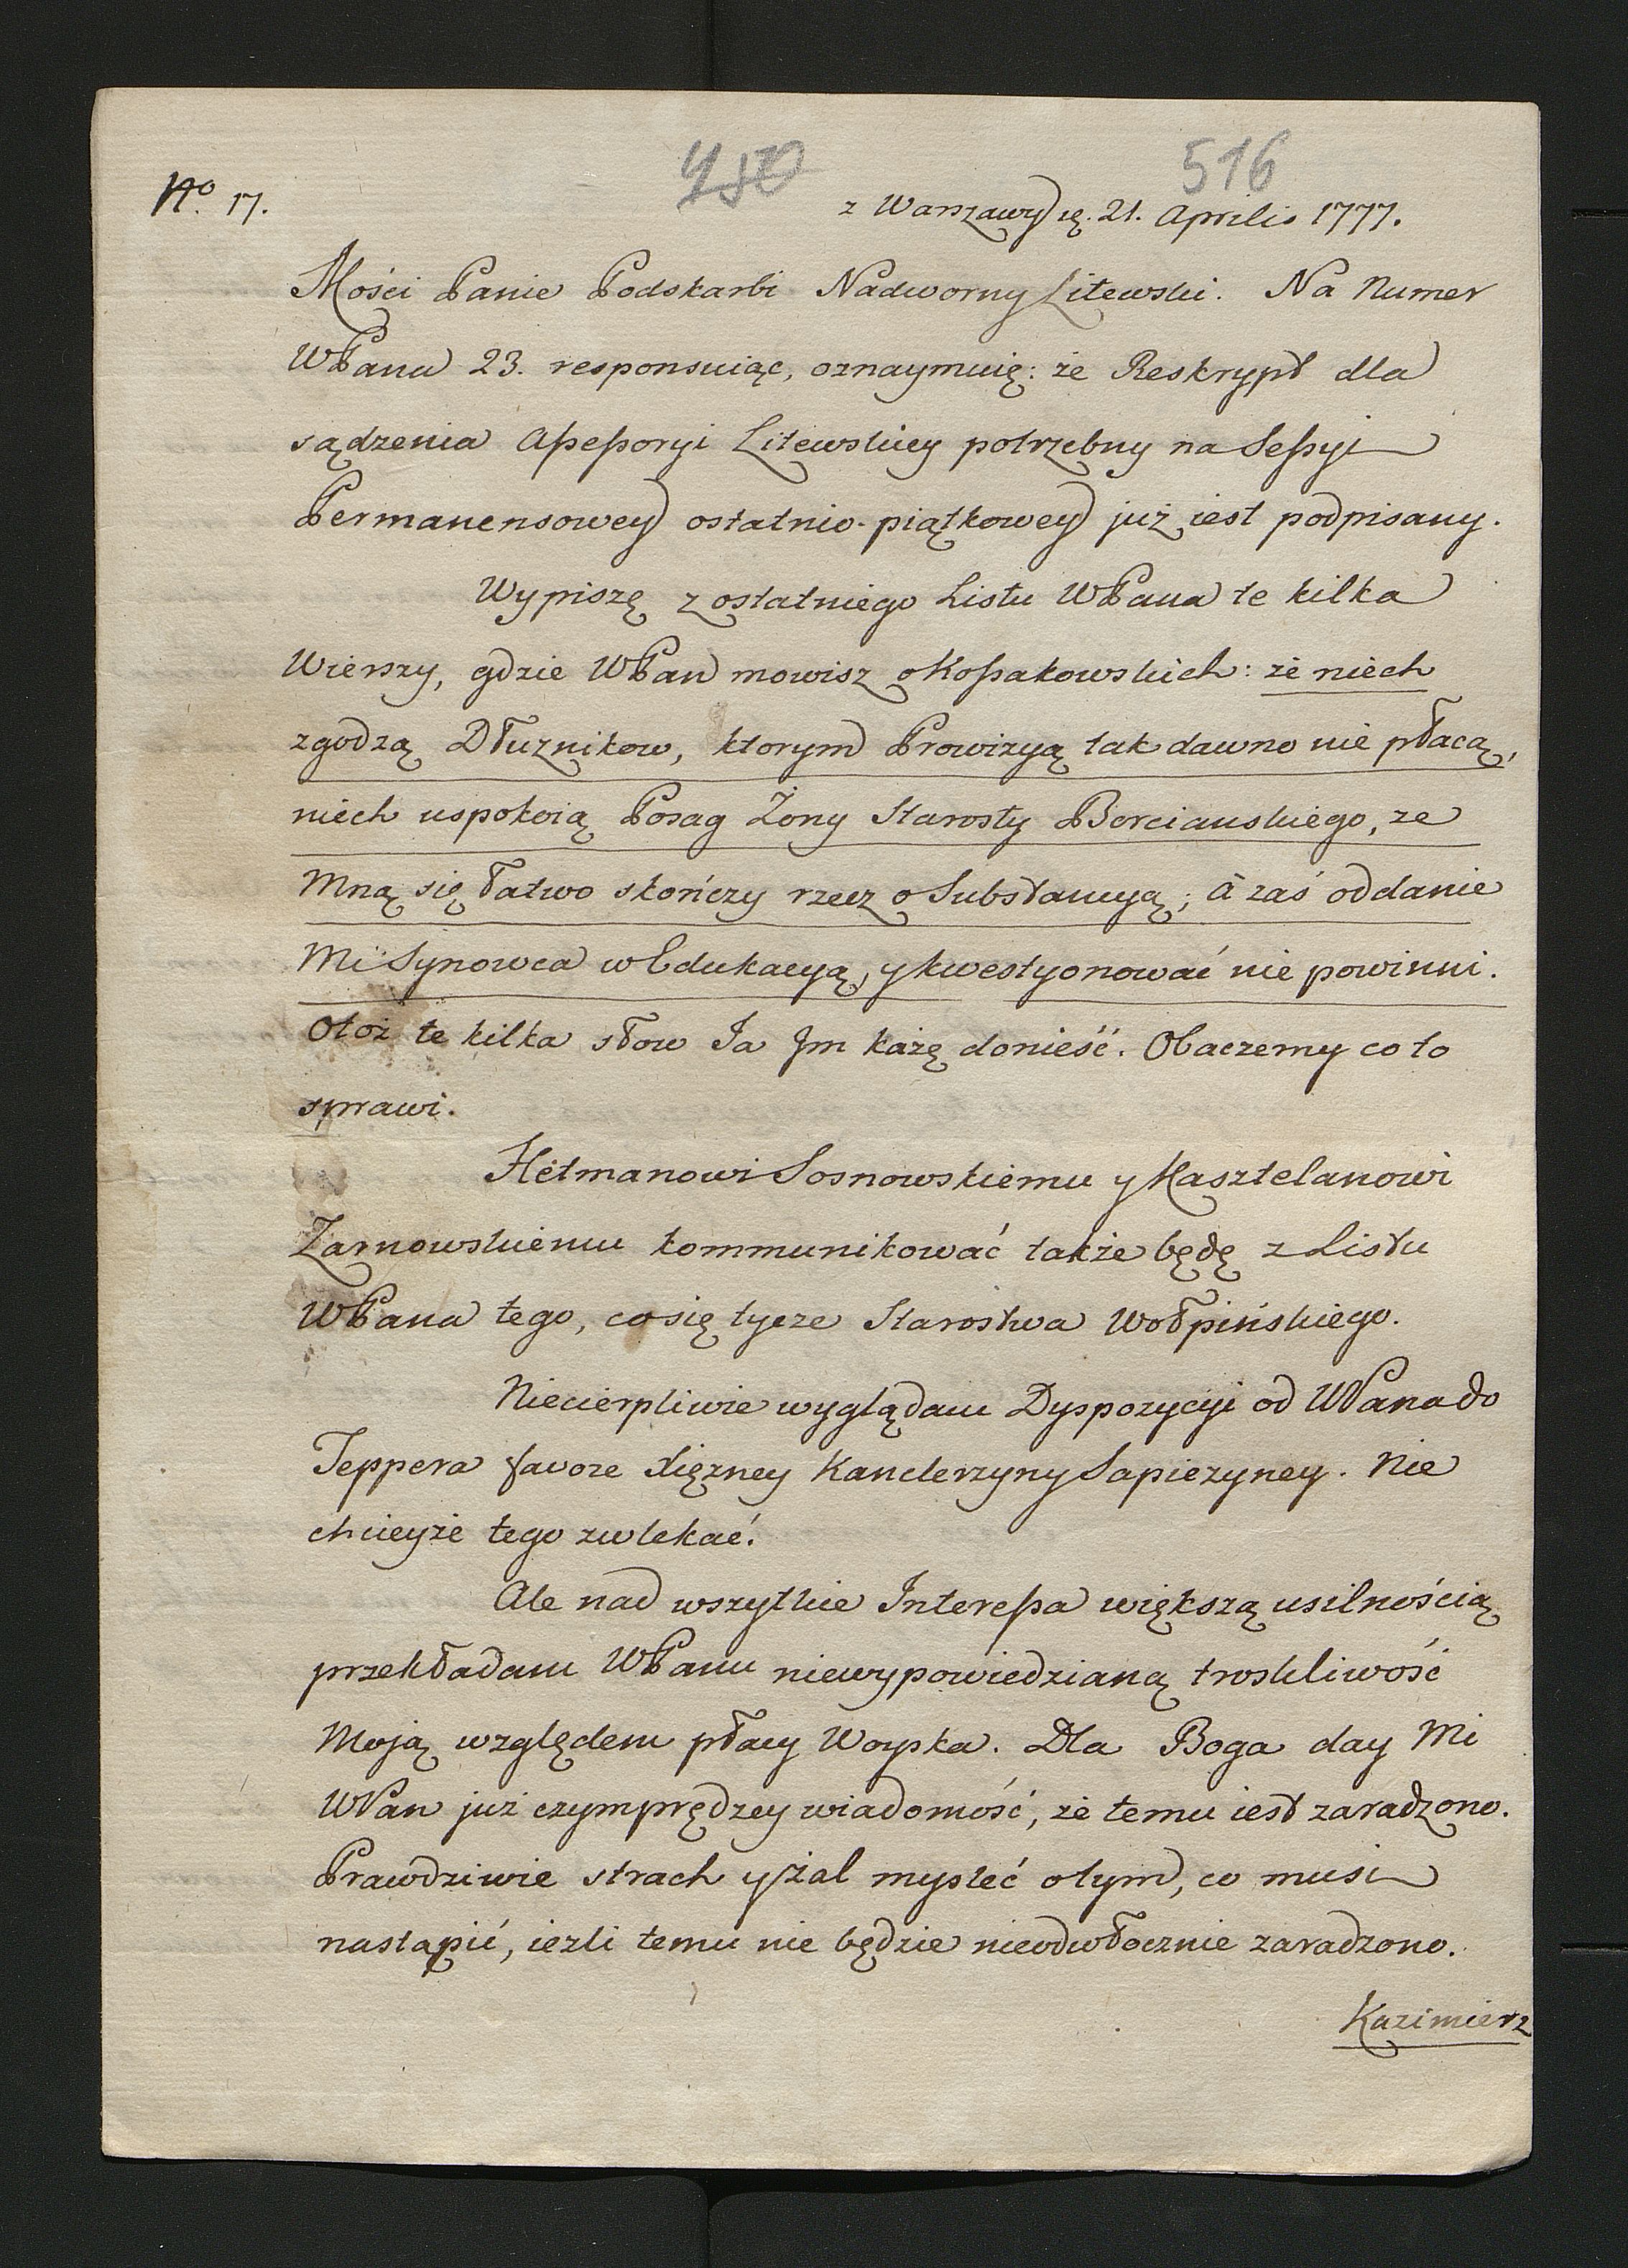 516
No. 17.
z Warszawy 21. Aprilis 1777.
Mości Panie Podskarbi Nadworny Litewski. Na Numer
WPana 23. responsuiąc, oznaymuię: że Reskrypt dla
sądzenia Assessoryi Litewskiey potrzebny na Sessyi
Permanensowey ostatnio-piątkowey już iest podpisany.
Wypiszę z ostatniego Listu WPana te kilka
Wierszy, gdzie WPan mowisz o Kossakowskich: że niech
zgodzą Dłużnikow, ktorym Prowizyą tak dawno nie płacą,
niech uspokoią Posag Żony Starosty Borcianskiego, ze
Mną się łatwo skończy rzecz o Substancyą; à zaś oddanie
Mi Synowca w Edukacyą, y kwestyonować nie powinni.
Otoż te kilka słow Ja Jm każę donieść. Obaczemy co to
sprawi.
Hetmanowi Sosnowskiemu y Kasztelanowi
Żarnowskiemu kommunikować także będę z Listu
WPana tego, co się tycze Starostwa Wołpińskiego.
Niecierpliwie wyglądam Dyspozycyi od WPana do
Teppera favore Xiężney Kanclerzyny Sapieżyney. Nie
chcieyże tego zwlekać.
Ale nad wszytkie Interessa większą usilnością
przekładam WPanu niewypowiedzianą troskliwość
Moją względem płacy Woyska. Dla Boga day Mi
WPan już czymprędzey wiadomość, że temu iest zaradzono.
Prawdziwie strach y żal mysleć o tym, co musi
nastąpić, ieżli temu nie będzie nieodwłocznie zaradzono.
Kazimierz